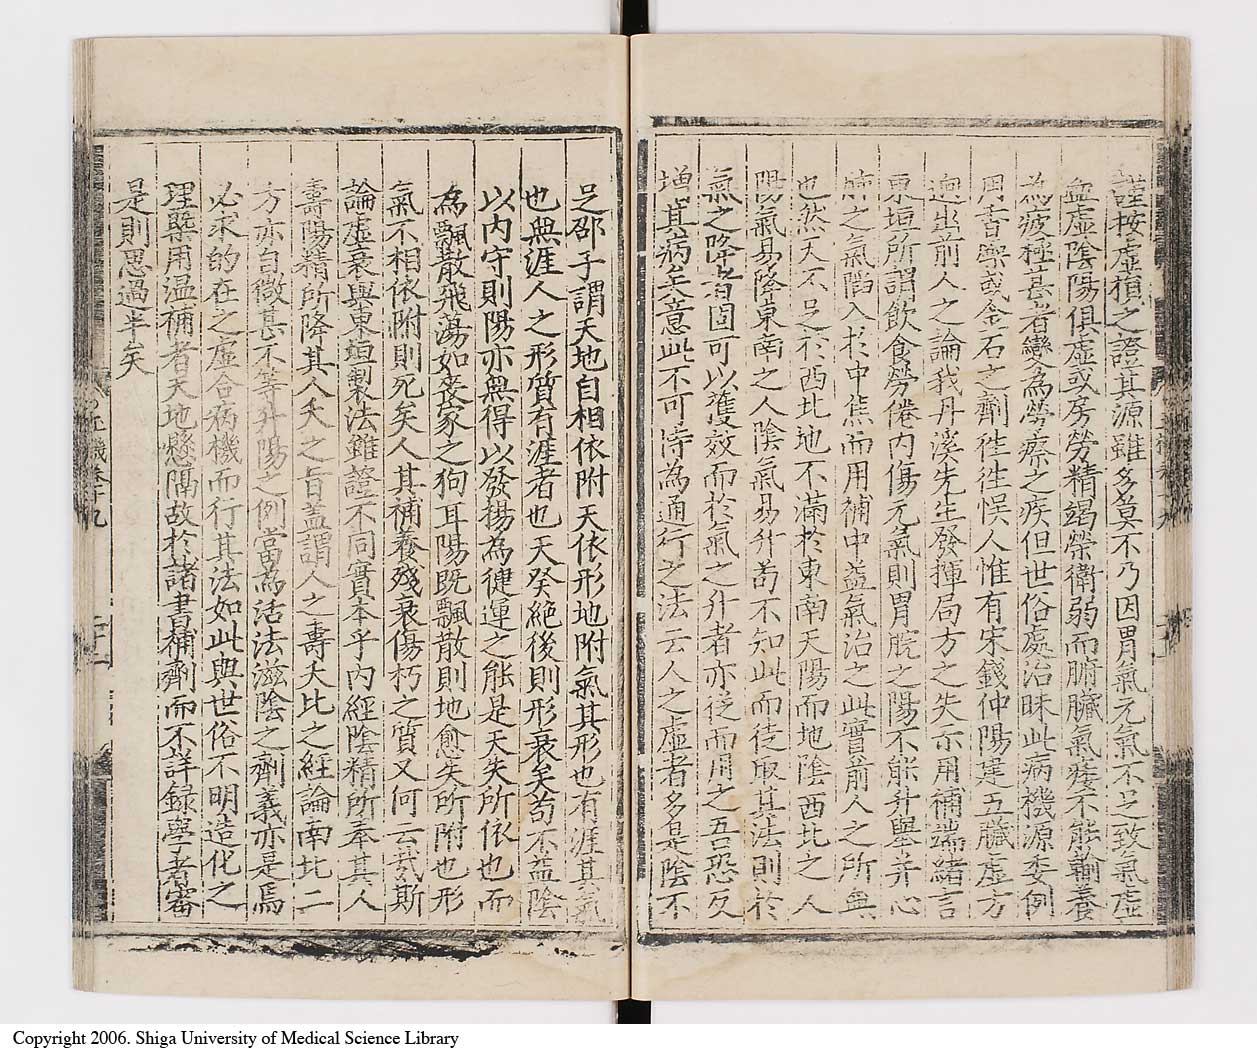 謹按虛損之證其源雖多莫不乃因胃氣元氣不足致氣虛
血虛陰陽俱虛或房勞精竭榮衛弱而腑臟氣痿不能輸養
為疲極甚者變為勞瘵之疾但世俗處治昧此病機源委例
用香燥或金石之劑徃徃悞人惟有宋錢仲陽建五臟虛方
逈出前人之論我丹溪先生發揮局方之失亦用補端緒言
東垣所謂飲食勞倦內傷元氣則胃脘之陽不能升舉并心
肺之氣䧟入於中焦而用補中益氣治之此實前人之所無
也然天不足於西北地不滿於東南天陽而地陰西北之人
陽氣易降東南之人陰氣易升苟不知此而徒取其法則於
氣之降者固可以獲效而於氣之升者亦從而用之吾恐反
增其病矣意此不可恃為通行之法云人之虛者多是陰不
足邵子謂天地自相依附天依形地附氣其形也有涯其氣
也無涯人之形質有涯者也天癸絕後則形衰矣苟不益陰
以內守則陽亦無得以發揚為健運之能是天失所依也而
為飄散飛蕩如喪家之狗耳陽既飄散則地愈失所附也形
氣不相依附則死矣人其補養殘衰傷朽之質又何云哉斯
論虛衰與東垣製法雖證不同實本乎內經陰精所奉其人
壽陽精所降其人夭之旨蓋謂人之壽夭比之經論南北二
方亦自微甚不等升陽之例當為活法滋陰之劑義亦是焉
必求的在之虛合病機而行其法如此與世俗不明造化之
理槩用溫補者天地懸隔故於諸書補劑而不詳録學者審
是則思過半矣
Copyright 2006. Shiga University of Medical Science Library